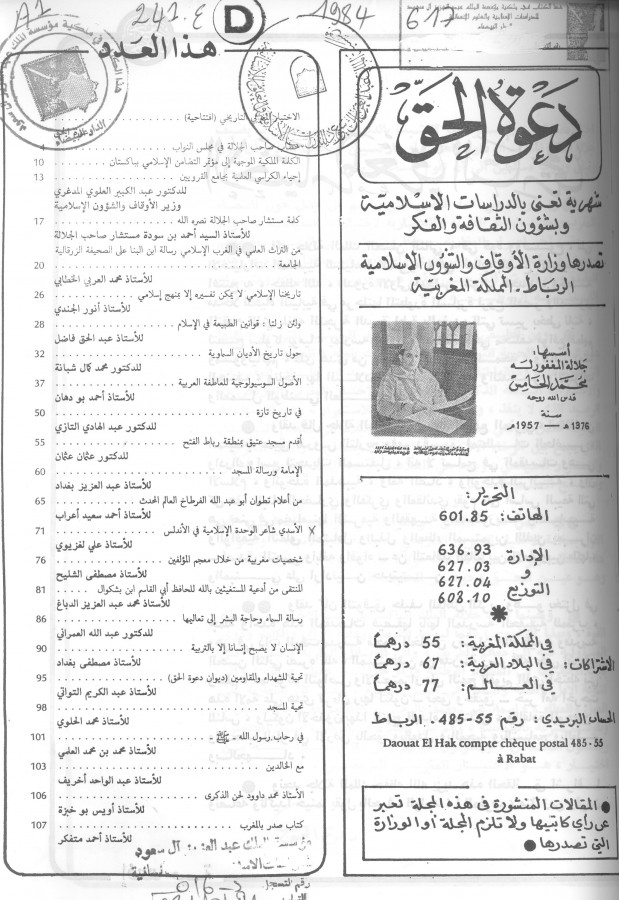 A1
241.4
D
1984
617
دعوة الحق
شهرية تعنى بالدراسات الإسلامية
وبشؤون الثقافة والفكر
تصدرها وزارة الأوقاف والشؤون الإسلامية
الرباط . المملكة المغربية
أسسها:
جلالة المغفور له
محمد الخامس
قدس الله روحه
سنة
1376 هـ — 1957 م
التحرير:
الهاتف: 601.85
الإدارة
و
التوزيع
636.93
627.03
627.04
608.10
الاشتراكات:
في المملكة المغربية: 55 درهما
في البلاد العربية: 67 درهما
في العالم: 77 درهما
الحساب البريدي: رقم 55-485. الرباط
Daouat El Hak compte chèque postal 485 - 55
à Rabat
المقالات المنشورة في هذه المجلة تعبر
عن رأي كاتبيها ولا تلزم المجلة أو الوزارة
التي تصدرها
هذا العدد
التاريخي (افتتاحية)
صاحب الجلالة في مجلس النواب
الكلمة الملكية الموجهة إلى مؤتمر التضامن الإسلامي بباكستان 10
إحياء الكراسي العلمية بجامع القرويين 13
للدكتور عبد الكبير العلوي المدغري
وزير الأوقاف والشؤون الإسلامية
كلمة مستشار صاحب الجلالة نصره الله 17
للأستاذ السيد أحمد بن سودة مستشار صاحب الجلالة
من التراث العلمي في الغرب الإسلامي رسالة ابن البنا على الصحيفة الزرقالية
الجامعة 20
للأستاذ محمد العربي الخطابي
تاريخنا الإسلامي لا يمكن تفسيره إلا بمنهج إسلامي 26
للأستاذ أنور الجندي
ولئن زلتا : قوانين الطبيعة في الإسلام 28
للأستاذ عبد الحق فاضل
حول تاريخ الأديان السماوية 32
للدكتور محمد كمال شبانة
الأصول السوسيولوجية للعاطفة العربية 37
للأستاذ أحمد بو دهان
في تاريخ تازة 50
للدكتور عبد الهادي التازي
أقدم مسجد عتيق بمنطقة رباط الفتح 55
للدكتور عثمان عثمان
الإمامة ورسالة المسجد 60
للأستاذ عبد العزيز بغداد
من أعلام تطوان أبو عبد الله الفرطاخ العالم المحدث 65
للأستاذ أحمد سعيد أعراب
الأسدي شاعر الوحدة الإسلامية في الأندلس 71
للأستاذ علي لغزيوي
شخصيات مغربية من خلال معجم المؤلفين 76
للأستاذ مصطفى الشليح
المنتقى من أدعية المستغيثين بالله للحافظ أبي القاسم ابن بشكوال 81
للأستاذ محمد عبد العزيز الدباغ
رسالة السماء وحاجة البشر إلى تعاليمها 86
للدكتور عبد الله العمراني
الإنسان لا يصبح إنسانا إلا بالتربية 90
للأستاذ مصطفى بغداد
تحية للشهداء والمقاومين (ديوان دعوة الحق) 95
للأستاذ عبد الكريم التواتي
تحية المسجد 98
للأستاذ محمد الحلوي
في رحاب رسول الله ـ ﷺ ـ 101
للأستاذ محمد بن محمد العلمي
مع الخالدين 103
للأستاذ عبد الواحد أخريف
الأستاذ محمد داوود لحن الذكرى 106
للأستاذ أويس بو خبزة
كتاب صدر بالمغرب 107
للأستاذ أحمد متفكر